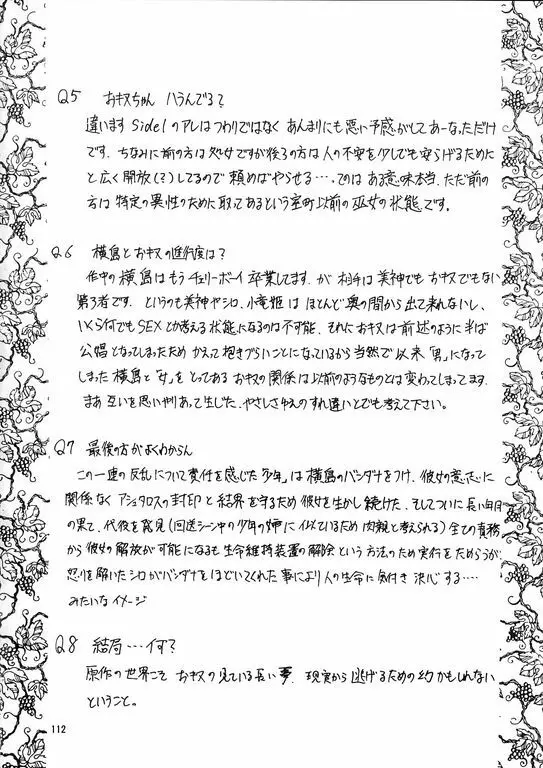 Q5 おキヌちゃん ハラんでる?
違います Side1のアレはつわりではなく あんまりにも悪い予感がしてあーなっただけ
です. ちなみに前の方は処女ですが後ろの方は人の不安を少しでも安らげるために
と広く開放(?)してるので 頼めばやらせる…, てのは ある意味本当. ただ前の
方は 特定の異性のために取ってあるという室町以前の巫女の状態です。
Q6 横島とおキヌの進行度は?
作中の横島はもうチェリーボーイ卒業してます. が 相手は美神でも おキヌでもない
第3者です. というのも美神やシロ、小竜姫はほとんど奥の間から出て来れないし、
いくら何でもSEXとか考える状態になるのは不可能. それにおキヌは前述のように半ば
公娼となってしまったため かえって抱きづらいことになっているから当然で 以来「男」になって
しまった横島と「女」をとってある おキヌの関係は以前のようなものとは変わってしまってます.
まあ互いを思いやりあって生じた、やさしさゆえのすれ違いとでも考えて下さい。
Q7 最後の方がよくわからん
この一連の反乱について責任を感じた「少年」は 横島のバンダナをつけ、彼女の意志に
関係なく アシュタロスの封印と結界を守るため彼女を生かし続けた、そしてついに長い年月
の果て、代役を発見(回送シーン中の少年の姉に似ているため肉親と考えられる) 全ての責務
から彼女の解放が可能になるも 生命維持装置の解除という方法のため実行をためらうが、
怒りを解いたシロがバンダナをほどいてくれた事により人の生命に気付き 決心する….
みたいなイメージ
Q8 結局…何?
原作の世界こそ おキヌの見ている長い夢. 現実から逃げるための幻かもしれない
ということ。
112